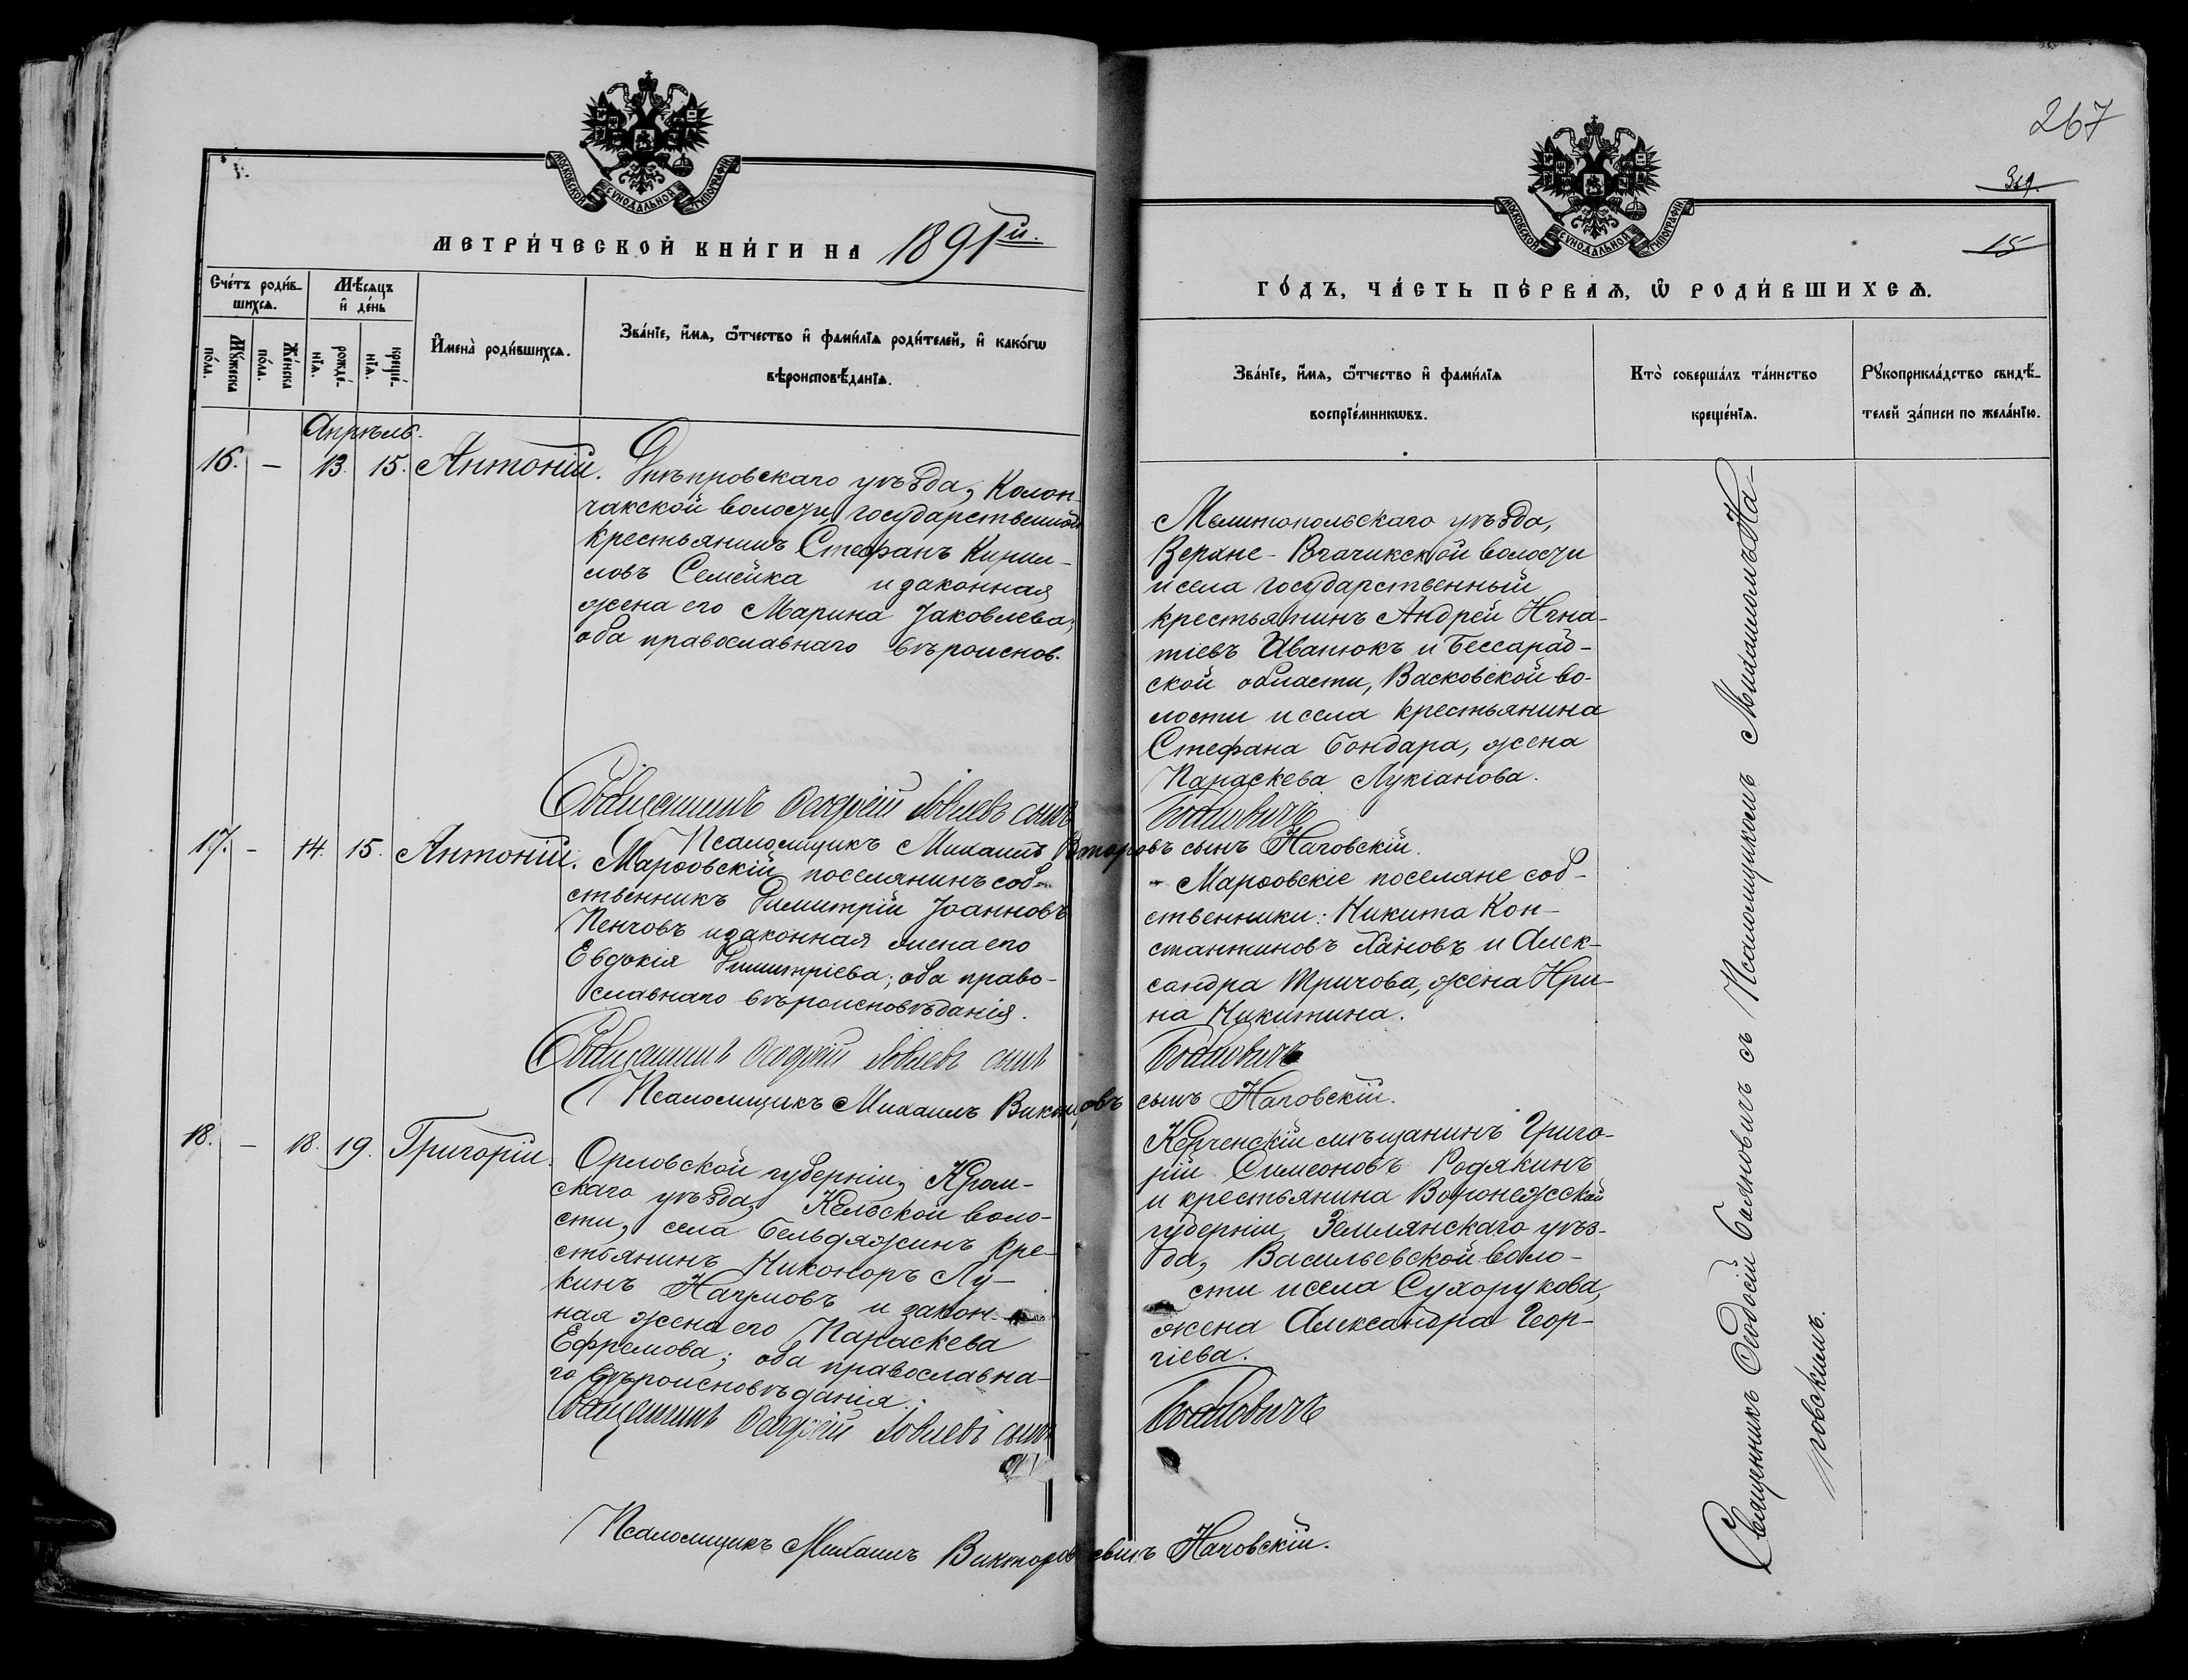 МОСКОВСКОЙ СѴНОДАЛЬНОЙ ТИПОГРАФІИ
МЕТРИ́ЧЕСКОЙ КНИ́ГИ НА 1891й.
Сче́тъ роди́в-
шихсѧ.
Мѣ́сяцъ
и҆ де́нь
Мꙋ́жеска
по́ла.
Же́нска
по́ла.
рожде́-
нїѧ.
креще́-
нїѧ.
И҆мена̀ роди́вшихсѧ.
Зва́нїе, и҆́мѧ, ѻ҆́тчество и҆ фами́лїѧ роди́телей, и҆ како́гѡ
вѣроисповѣ́данїѧ.
Апрѣль.
16. — 13. 15. Антоній.
Днѣпровскаго уѣзда, Колон-
чакской волости, государственный
крестьянинъ Стефанъ Кирил-
ловъ Семейка и законная
жена его Марина Іаковлева;
оба православнаго вѣроиспов.
Священникъ Ѳеодосій Іовлевъ сынъ
Псаломщикъ Михаилъ Викторовъ сынъ Наговскій.
17. — 14. 15. Антоній.
Марѳовскій поселянинъ соб-
ственникъ Димитрій Іоанновъ
Пенчовъ и законная жена его
Евдокія Димитріева; оба право-
славнаго вѣроисповѣданія.
Священникъ Ѳеодосій Іовлевъ сынъ
Псаломщикъ Михаилъ Викторовъ сынъ Наговскій.
18. — 18. 19. Григорій.
Орловской губерніи, Кром-
скаго уѣзда, Кельской воло-
сти, села Бельдяжинъ кре-
стьянинъ Никоноръ Лу-
кинъ Наумовъ и закон-
ная жена его Параскева
Ефремова; оба православна-
го вѣроисповѣданія.
Священникъ Ѳеодосій Іовлевъ сынъ
Псаломщикъ Михаилъ Викторовъ сынъ Наговскій.
267
319.
15
МОСКОВСКОЙ СѴНОДАЛЬНОЙ ТИПОГРАФІИ
ГО́ДЪ, ЧА́СТЬ ПЕ́РВАѦ, Ѡ҆ РОДИ́ВШИХСѦ.
Зва́нїе, и҆́мѧ, ѻ҆́тчество и҆ фами́лїѧ
воспрїе́мникѡвъ.
Кто̀ соверша́лъ та́инство
креще́нїѧ.
Рꙋкоприкла́дство свидѣ́-
телей за́писи по жела́нїю.
Мелитопольскаго уѣзда,
Верхне-Рогачикской волости
и села государственный
крестьянинъ Андрей Игна-
тіевъ Иванюкъ и Бессараб-
ской области, Васковской во-
лости и села крестьянина
Стефана Бондара, жена
Параскева Лукіанова.
Баляновичъ
Марѳовскіе поселяне соб-
ственники: Никита Кон-
стантиновъ Хановъ и Алек-
сандра Тричова, жена Ири-
на Никитина.
Баляновичъ
Керченскій мѣщанинъ Григо-
рій Симеоновъ Родякинъ
и крестьянина Воронежской
губерніи, Землянскаго уѣз-
да, Васильевской воло-
сти и села Сухорукова,
жена Александра Геор-
гіева.
Баляновичъ
Священникъ Ѳеодосій Баляновичъ съ Псаломщикомъ Михаиломъ На-
говскимъ.